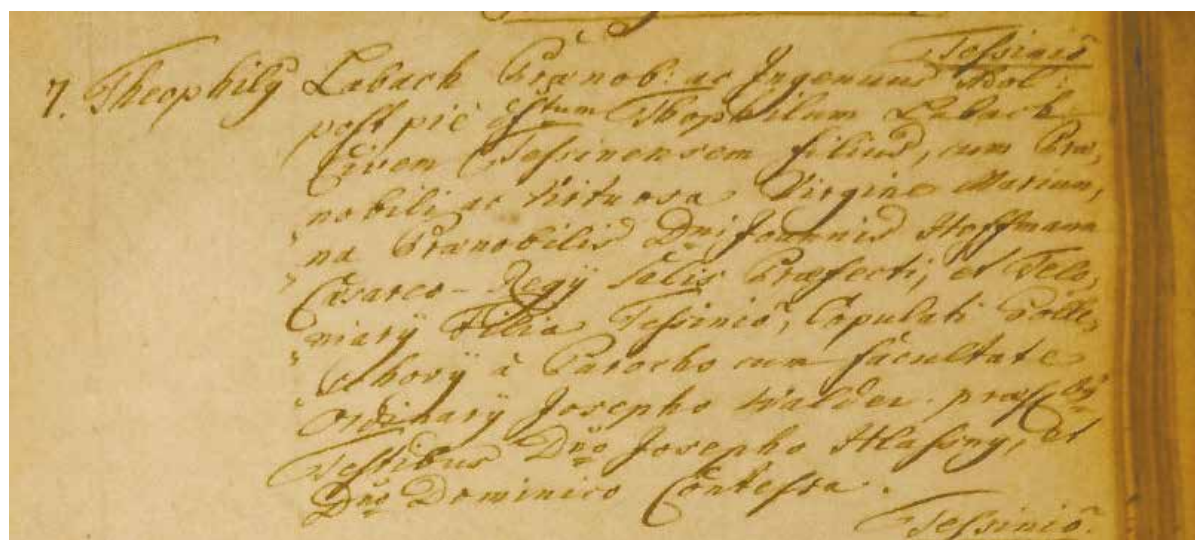 Tessinii
7. Theophilus Labach Prænob: ac Ingenuus Adol:
post pie Thophilum Labach
Civem Tessinensem filius, cum Præ,
nobili ac Virtuosa Virgine Marian,
na Prænobilis Dni Joannis Hoffmann
Cæsareo-Regÿ Salis Præfecti, et Telo,
niarÿ Filia Copulati Golle,
schovÿ à Parocho cum facultate
Ordinarÿ Josepho Walder
Testibus Dno Josepho Hlassny, et
Dno Dominico Contessa.
Tessinii